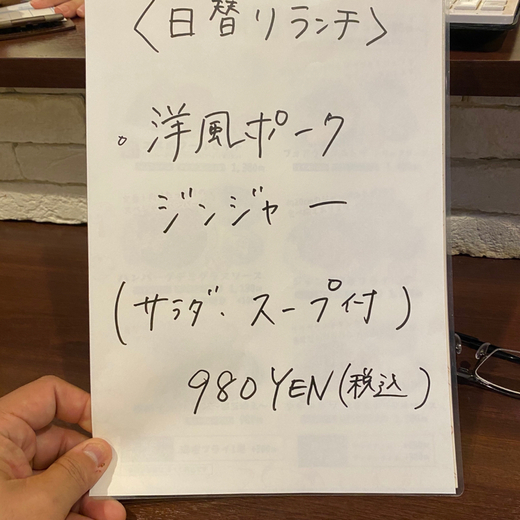 〈日替りランチ〉
。洋風ポーク
ジンジャー
(サラダ・スープ付)
980YEN(税込)